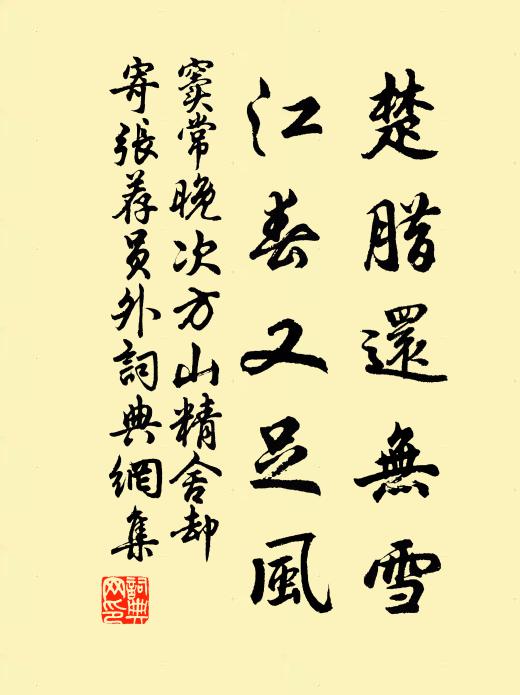 楚腊還無雪
江春又足風
窦常晚次方山精舍却
寄張荐員外詞典網集
詞典網印